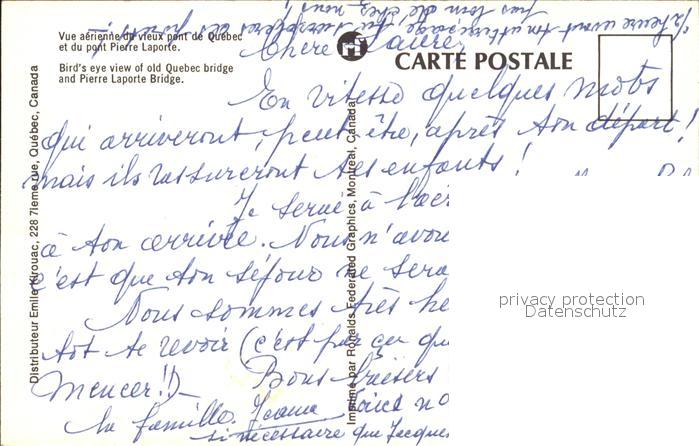 Vue aérienne du vieux pont de Québec
et du pont Pierre Laporte.
Bird's eye view of old Quebec bridge
and Pierre Laporte Bridge.
CARTE POSTALE
Distributeur Emile Kirouac, 228 7ieme rue, Québec, Canada
Imprimé par Ronalds Federated Graphics, Montreal, Canada
½ heure avant ton atterrissage
pas loin de chez nous!
Chère Laure,
En vitesse quelques mots
qui arriveront, peut-être, après ton départ!
mais ils rassureront tes enfants!
Je serai à l'aér
à ton arrivée. Nous n'avon
c'est que ton séjour ne sera
Nous sommes très he
tot te revoir (c'est par ça qu
mencer!!)
Bons baisers
la famille. Joana
si nécessaire que Jacques
privacy protection
Datenschutz